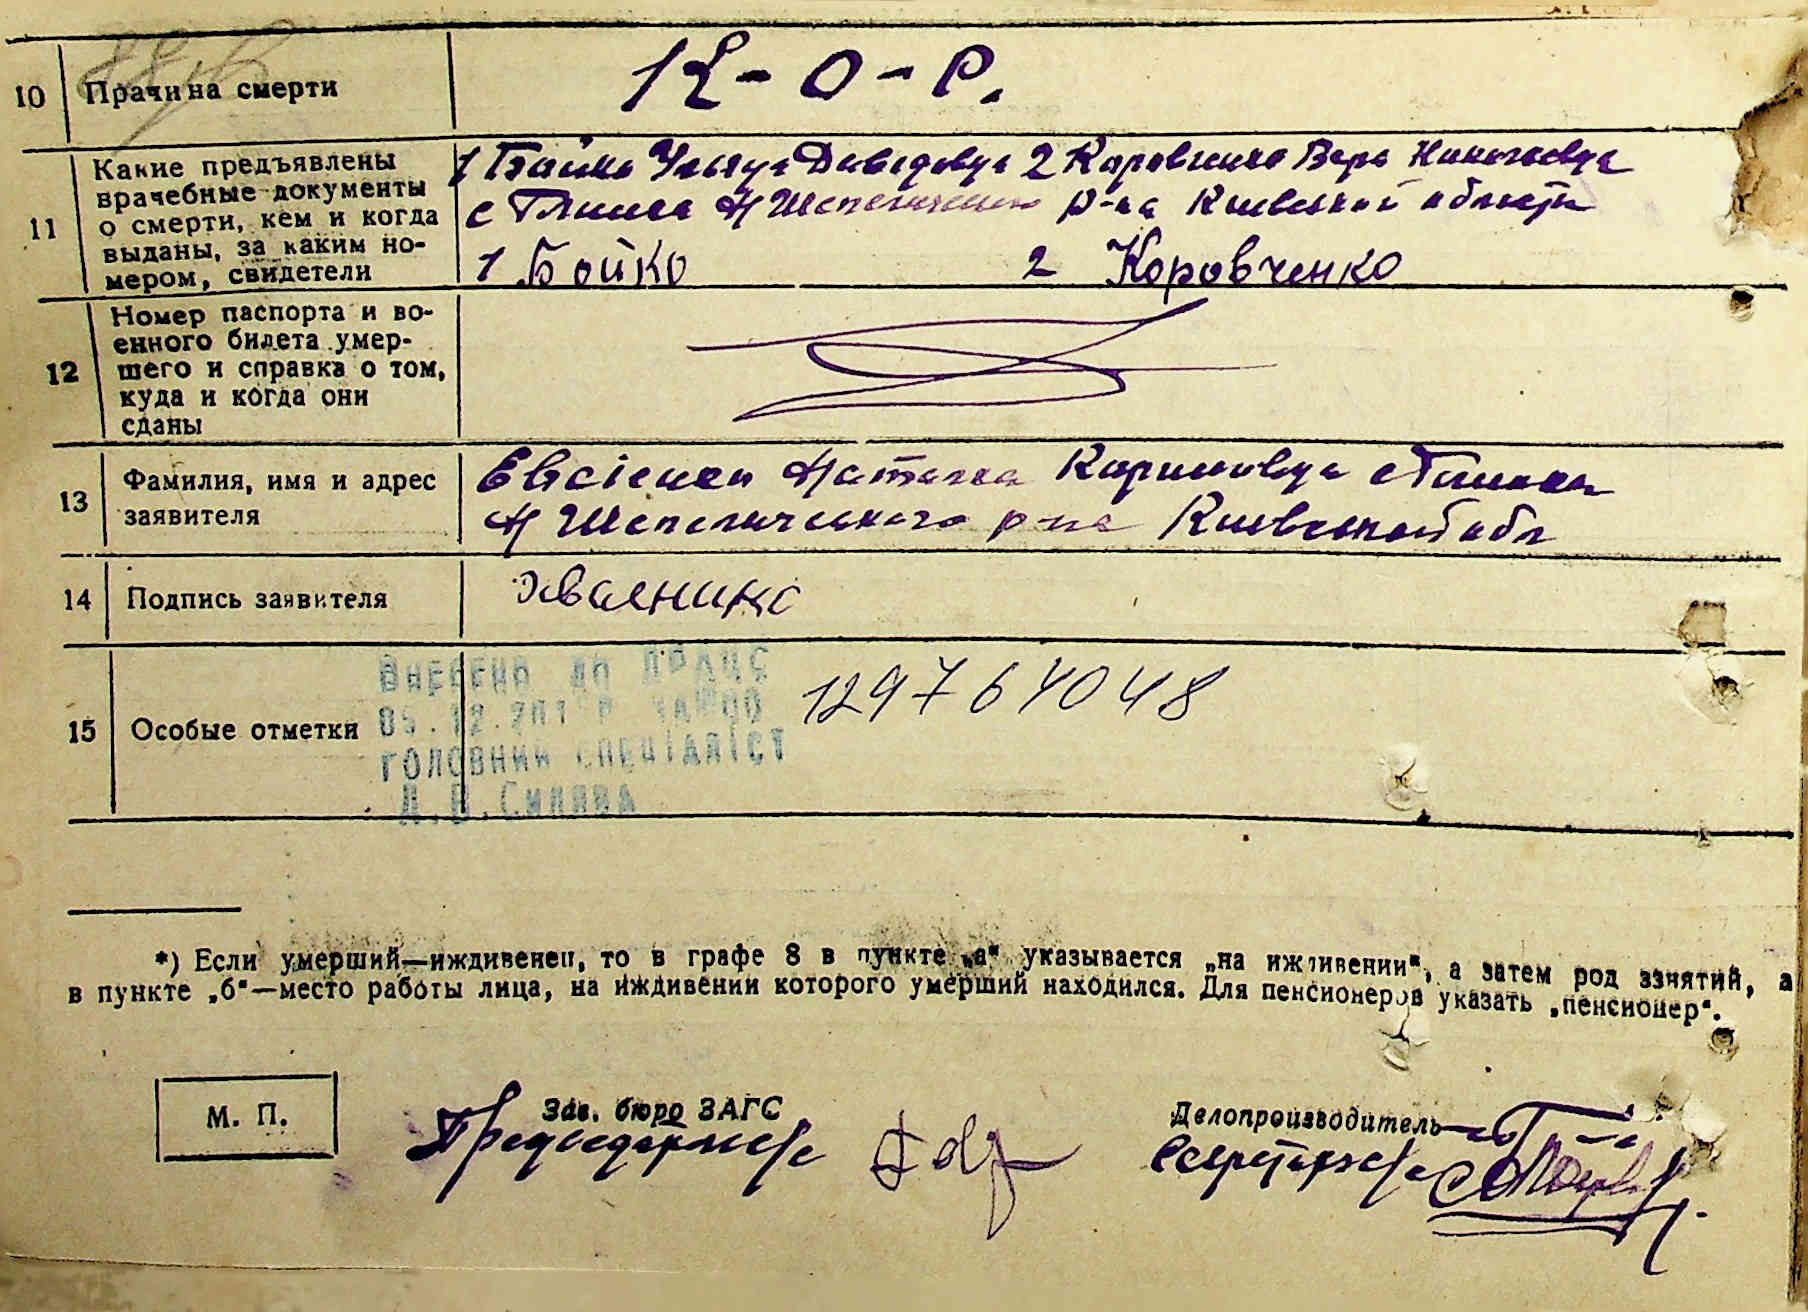 10 Прачина смерти К-о-р.
11 Какие предъявлены
врачебные документы
о смерти, кем и когда
выданы, за каким но-
мером, свидетели
1 Бойко Давидовна 2 Коровченко Вера Николаевна
с Н Шепеличского р-на Киевской области
1 Бойко 2 Коровченко
12 Номер паспорта и во-
енного билета умер-
шего и справка о том,
куда и когда они
сданы
13 Фамилия, имя и адрес
заявителя
Евсіенко Наталка с
Н Шепеличского р-на Киевской обл
14 Подпись заявителя
15 Особые отметки 129764048
ВНЕСЕНО ДО ДРАЦС
ГОЛОВНИЙ СПЕЦІАЛІСТ
*) Если умерший—иждивенец, то в графе 8 в пункте „а“ указывается „на иждивении“, а затем род занятий, а
в пункте „б“—место работы лица, на иждивении которого умерший находился. Для пенсионеров указать „пенсионер“.
М. П.
Зав. бюро ЗАГС
Делопроизводитель